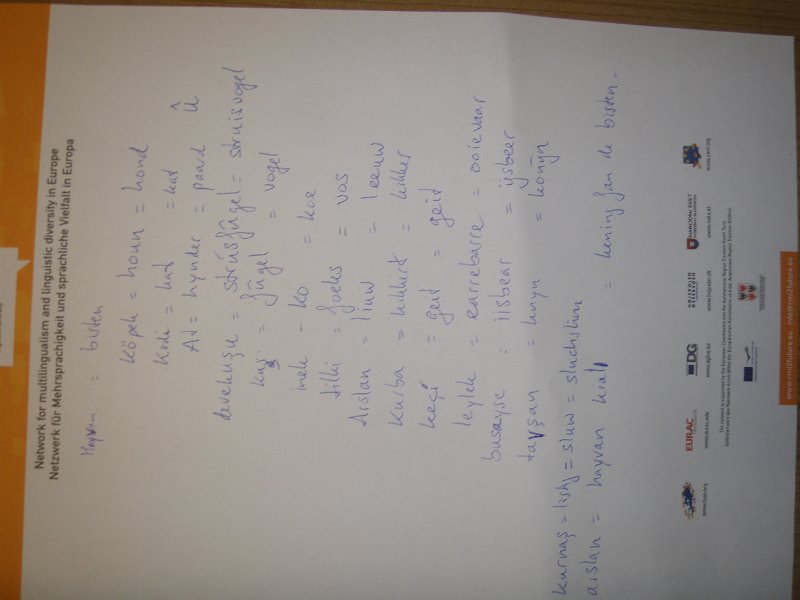 Network for multilingualism and linguistic diversity in Europe
Netzwerk für Mehrsprachigkeit und sprachliche Vielfalt in Europa
Hayvan = bisten
Köpek = houn = hond
Kedi = kat = kat
At = hynder = paard û
devekuşu = strúsfûgel = struisvogel
kuş = fûgel = vogel
inek - ko = koe
tilki = foeks = vos
Arslan = liuw = leeuw
Kurba = kikkert = kikker
keçi = geit = geit
leylek = earrebarre = ooievaar
busayse = iisbear = ijsbeer
tavşan = knyn = konijn
kurnaş = listig = sluw = sluchslim
arslan = hayvan kralı = kening fan de bisten.
EURAC
DG
www.eurac.edu
www.rml2future.eu